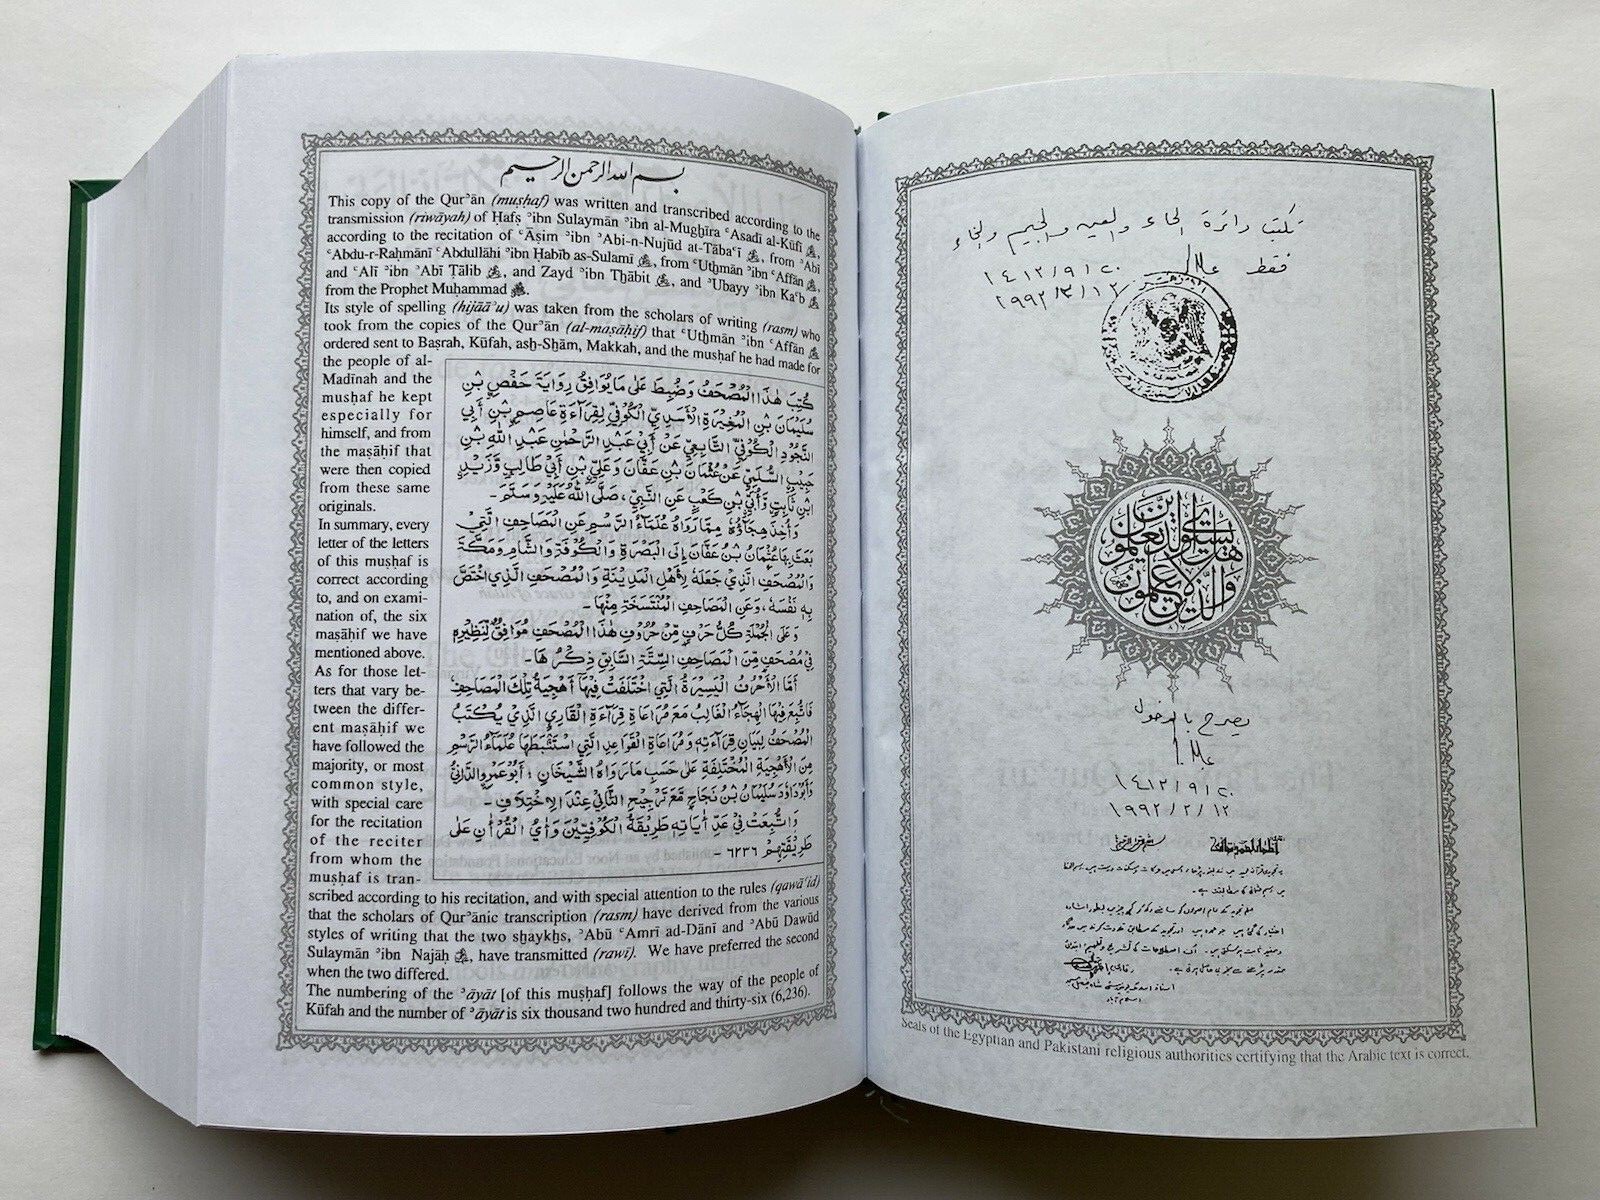 بسم الله الرحمن الرحيم
This copy of the Qurʾān (muṣḥaf) was written and transcribed according to the
transmission (riwāyah) of Ḥafṣ ʾibn Sulaymān ʾibn al-Mughīra ʿAsadī al-Kūfī ,
according to the recitation of ʿĀṣim ʾibn ʾAbi-n-Nujūd at-Tābaʿī , from ʾAbī
ʿAbdu-r-Raḥmānī ʿAbdullāhi ʾibn Ḥabīb as-Sulamī , from ʿUthmān ʾibn ʿAffān ,
and ʿAlī ʾibn ʾAbī Ṭālib , and Zayd ʾibn Thābit , and ʾUbayy ʾibn Kaʿb
from the Prophet Muḥammad .
Its style of spelling (hijāāʾu) was taken from the scholars of writing (rasm) who
took from the copies of the Qurʾān (al-maṣāḥif) that ʿUthmān ʾibn ʿAffān
ordered sent to Baṣrah, Kūfah, ash-Shām, Makkah, and the muṣḥaf he had made for
the people of al-
Madīnah and the
muṣḥaf he kept
especially for
himself, and from
the maṣāḥif that
were then copied
from these same
originals.
In summary, every
letter of the letters
of this muṣḥaf is
correct according
to, and on exami-
nation of, the six
maṣāḥif we have
mentioned above.
As for those let-
ters that vary be-
tween the differ-
ent maṣāḥif we
have followed the
majority, or most
common style,
with special care
for the recitation
of the reciter
from whom the
muṣḥaf is tran-
كُتِبَ هٰذَا الْمُصْحَفُ وَضُبِطَ عَلٰى مَا يُوَافِقُ رِوَايَةَ حَفْصِ بْنِ
سُلَيْمَانَ بْنِ الْمُغِيْرَةِ الْأَسَدِيِّ الْكُوْفِيِّ لِقِرَآءَةِ عَاصِمِ بْنِ أَبِي
النَّجُوْدِ الْكُوْفِيِّ التَّابِعِيِّ عَنْ أَبِيْ عَبْدِ الرَّحْمٰنِ عَبْدِ اللّٰهِ بْنِ
حَبِيْبِ السُّلَمِيِّ عَنْ عُثْمَانَ بْنِ عَفَّانَ وَعَلِيِّ بْنِ أَبِيْ طَالِبٍ وَّزَيْدِ
ابْنِ ثَابِتٍ وَّأُبَيِّ بْنِ كَعْبٍ عَنِ النَّبِيِّ، صَلَّى اللّٰهُ عَلَيْهِ وَسَلَّمَ -
وَأُخِذَ هِجَآؤُهٗ مِمَّا رَوَاهُ عُلَمَآءُ الرَّسْمِ عَنِ الْمَصَاحِفِ الَّتِيْ
بَعَثَ بِهَا عُثْمَانُ بْنُ عَفَّانَ إِلَى الْبَصْرَةِ وَالْكُوْفَةِ وَالشَّامِ وَمَكَّةَ
وَالْمُصْحَفِ الَّذِيْ جَعَلَهٗ لِأَهْلِ الْمَدِيْنَةِ وَالْمُصْحَفِ الَّذِي اخْتَصَّ
بِهٖ نَفْسَهٗ، وَعَنِ الْمَصَاحِفِ الْمُنْتَسَخَةِ مِنْهَا -
وَعَلَى الْجُمْلَةِ كُلُّ حَرْفٍ مِّنْ حُرُوْفِ هٰذَا الْمُصْحَفِ مُوَافِقٌ لِّنَظِيْرِهٖ
فِيْ مُصْحَفٍ مِّنَ الْمَصَاحِفِ السِّتَّةِ السَّابِقِ ذِكْرُهَا -
أَمَّا الْأَحْرُفُ الْيَسِيْرَةُ الَّتِي اخْتَلَفَتْ فِيْهَا أَهْجِيَةُ تِلْكَ الْمَصَاحِفِ
فَاتُّبِعَ فِيْهَا الْهِجَآءُ الْغَالِبُ مَعَ مُرَاعَاةِ قِرَآءَةِ الْقَارِي الَّذِيْ يُكْتَبُ
الْمُصْحَفُ لِبَيَانِ قِرَآءَتِهٖ وَمُرَاعَاةِ الْقَوَاعِدِ الَّتِي اسْتَنْبَطَهَا عُلَمَآءُ الرَّسْمِ
مِنَ الْأَهْجِيَةِ الْمُخْتَلِفَةِ عَلٰى حَسَبِ مَا رَوَاهُ الشَّيْخَانِ : أَبُوْ عَمْرٍو الدَّانِيُّ
وَأَبُوْ دَاوٗدَ سُلَيْمَانُ بْنُ نَجَاحٍ مَّعَ تَرْجِيْحِ الثَّانِيْ عِنْدَ الْاِخْتِلَافِ -
وَاتُّبِعَتْ فِيْ عَدِّ اٰيَاتِهٖ طَرِيْقَةُ الْكُوْفِيِّيْنَ وَاٰيُ الْقُرْاٰنِ عَلٰى
طَرِيْقَتِهِمْ ٦٢٣٦ -
scribed according to his recitation, and with special attention to the rules (qawāʿid)
that the scholars of Qurʾānic transcription (rasm) have derived from the various
styles of writing that the two shaykhs, ʾAbū ʿAmri ad-Dānī and ʾAbū Dawūd
Sulaymān ʾibn Najāḥ , have transmitted (rawī). We have preferred the second
when the two differed.
The numbering of the ʾāyāt [of this muṣḥaf] follows the way of the people of
Kūfah and the number of ʾāyāt is six thousand two hundred and thirty-six (6,236).
تكتب دائرة الحاء والعين والجيم والخاء
فقط
١٤١٢/٩/٢٠
١٩٩٢/٣/١٢
هل يستوي الذين يعلمون والذين لا يعلمون
يصرح بالدخول
١٤١٢/٩/٢٠
١٩٩٢/٣/١٢
Seals of the Egyptian and Pakistani religious authorities certifying that the Arabic text is correct.